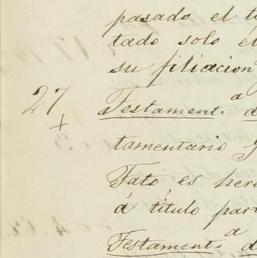 pasado el t
tado solo e
su filiacion
27 Testament.ª d
+
tamentario J
Fato, es here
á título par
Testament.ª d